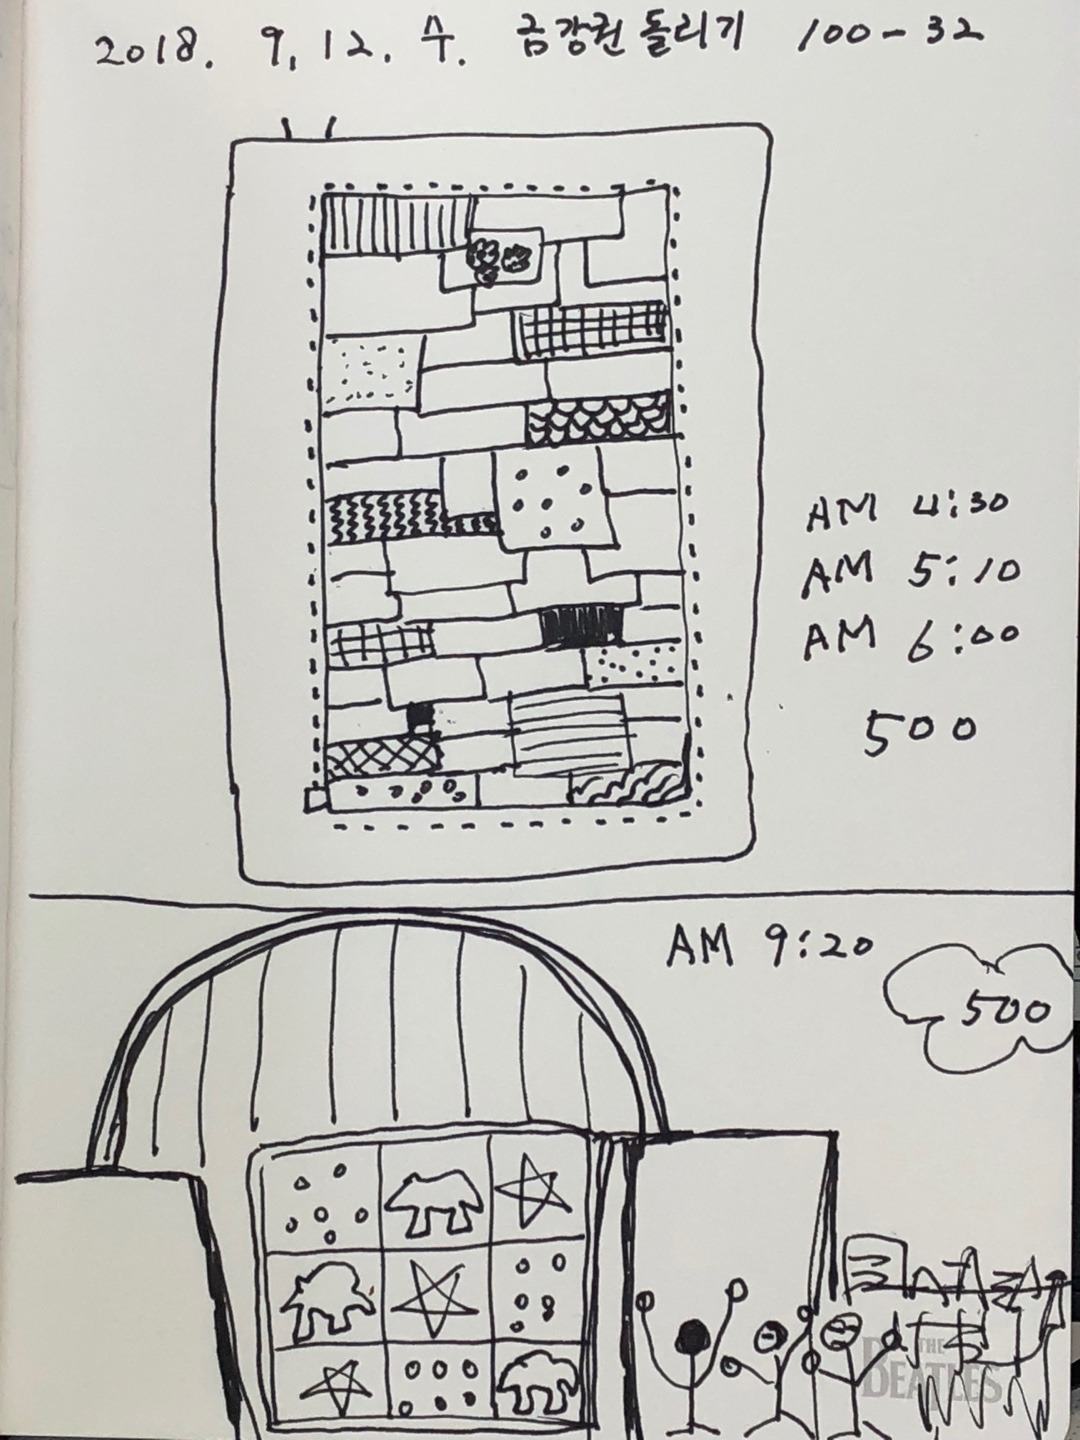 2018. 9, 12. 수. 금강권 돌리기 100-32
AM 4:30
AM 5:10
AM 6:00
500
AM 9:20
500
THE
BEATLES